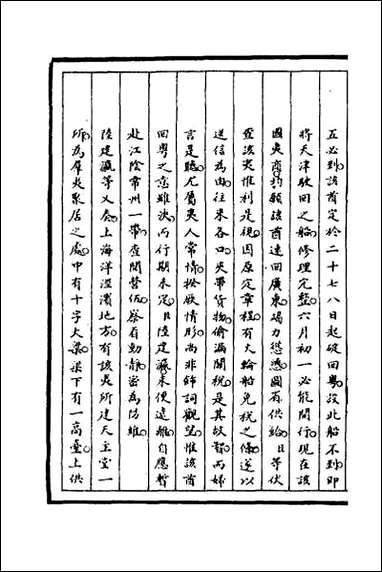 五必到該酋定於二十七八日起碇回粵設此船不到即
將天津駛回之船修理完整六月初一必能開行現在該
國夷商約願該酋速回廣東竭力慫慂圖有供給臣等伏
查該夷惟利是視因原定章程有火輪船免稅之條遂以
送信為由往來各口夾帶貨物偷漏關稅是其故智而婦
言是聽尤屬夷人常情揆厥情形尚非飾詞觀望惟該酋
回粵之意雖決而行期未定臣陸建瀛未便遠離自應暫
赴江陰常州一帶查閱營伍察看動靜密為防維
陸建瀛等又奏上海洋涇濱地方有該夷所建天主堂一
所為羣夷聚居之處中有十字大梁梁下有一高臺上供